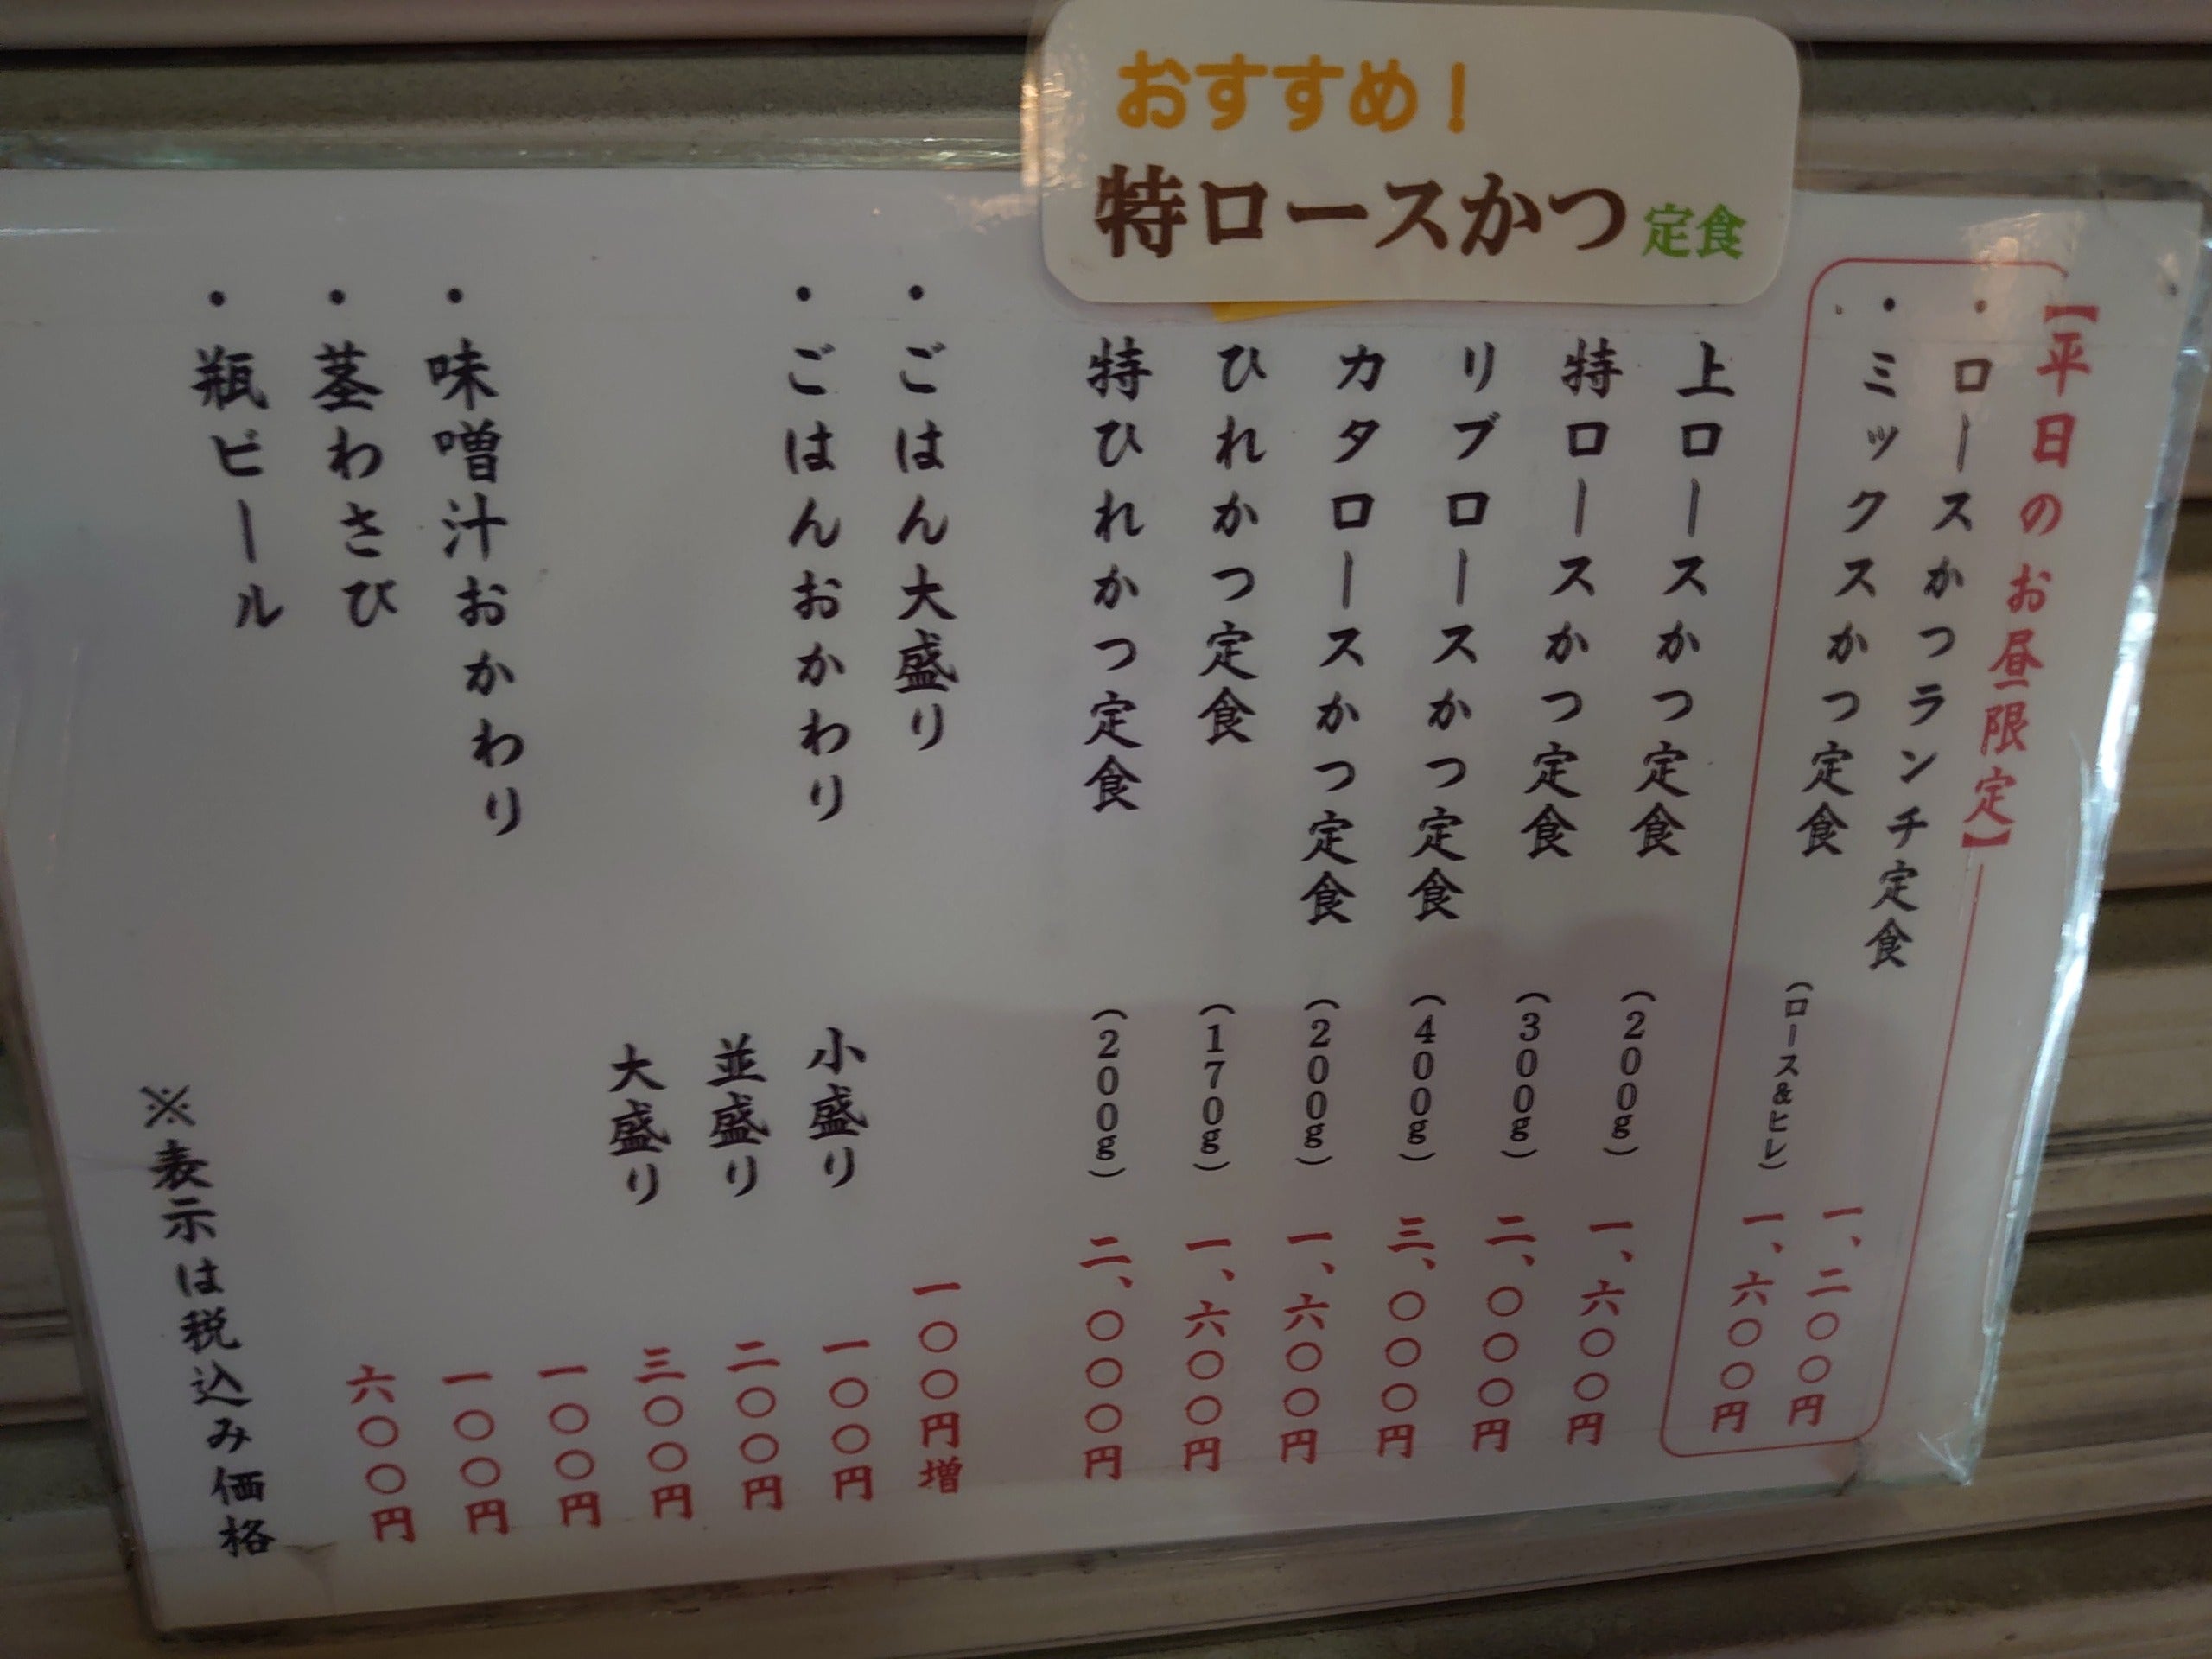 おすすめ！
特ロースかつ定食
【平日のお昼限定】
・ロースかつランチ定食 一、二〇〇円
・ミックスかつ定食 （ロース&ヒレ） 一、六〇〇円
上ロースかつ定食 （200g） 一、六〇〇円
特ロースかつ定食 （300g） 二、〇〇〇円
リブロースかつ定食 （400g） 三、〇〇〇円
カタロースかつ定食 （200g） 一、六〇〇円
ひれかつ定食 （170g） 一、六〇〇円
特ひれかつ定食 （200g） 二、〇〇〇円
・ごはん大盛り 一〇〇円増
・ごはんおかわり 小盛り 一〇〇円
並盛り 二〇〇円
大盛り 三〇〇円
・味噌汁おかわり 一〇〇円
・茎わさび 一〇〇円
・瓶ビール 六〇〇円
※表示は税込み価格